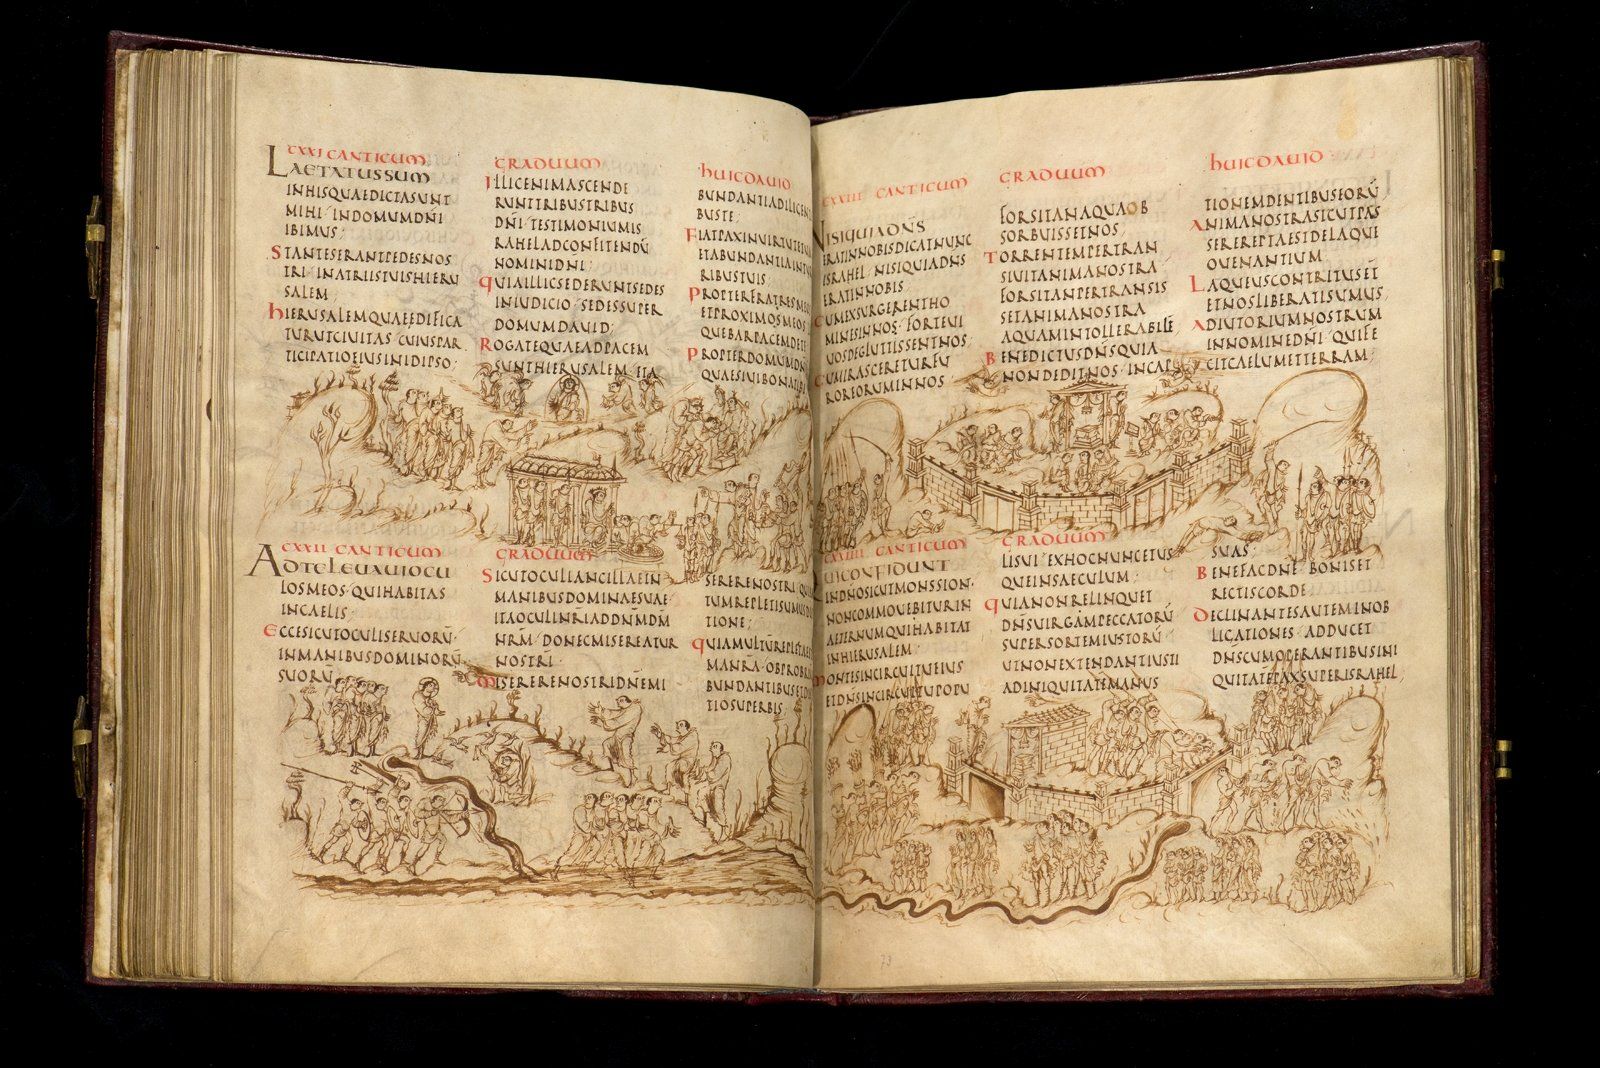 CXXI CANTICUM GRADUUM HUIC DAVID
LAETATUSSUM
INHISQUAEDICTASUNT
MIHI INDOMUMDNI
IBIMUS;
STANTESERANTPEDESNOS
TRI INATRIISTUISHIERU
SALEM;
HIERUSALEMQUAEAEDIFICA
TURUTCIVITAS CUIUSPAR
TICIPATIOEIUSINIDIPSO;
ILLICENIMASCENDE
RUNTTRIBUSTRIBUS
DNI TESTIMONIUMIS
RAHELADCONFITENDŪ
NOMINIDNI;
QUIAILLICSEDERUNTSEDES
INIUDICIO SEDESSUPER
DOMUMDAVID;
ROGATEQUAEADPACEM
SUNTHIERUSALEM ETA
BUNDANTIADILIGEN
BUSTE;
FIATPAXINVIRTUTETUA
ETABUNDANTIAINTUR
RIBUSTUIS;
PROPTERFRATRESMEOS
ETPROXIMOSMEOS
QUEBARPACEMDETE
PROPTERDOMUMDNI
QUAESIVIBONATIBI
CXXII CANTICUM GRADUUM
ADTELEVAVIOCU
LOSMEOS QUIHABITAS
INCAELIS;
ECCESICUTOCULISERVORŪ
INMANIBUSDOMINORŪ
SUORŪ
SICUTOCULIANCILLAEIN
MANIBUSDOMINAESUAE
ITAOCULINRIADDNMDM
NRM DONECMISEREATUR
NOSTRI
MISERERENOSTRIDNEMI
SERERENOSTRI QUIA
TUMREPLETISUMUSD
TIONE;
QUIAMULTUREPLETAE
MANRA OBPROBRI
BUNDANTIBUSETD
TIOSUPERBIS;
CXXIII CANTICUM GRADUUM HUIC DAVID
NISIQUIADNS
ERATINNOBISDICATNUNC
ISRAHEL NISIQUIADNS
ERATINNOBIS
CUMEXSURGERENTHO
MINESINNOS FORTEVI
VOSDEGLUTISSENTNOS
CUMIRASCERETURFU
RORIORUMINNOS
FORSITANAQUAOB
SORBUISSETNOS;
TORRENTEMPERTRAN
SIVITANIMANOSTRA
FORSITANPERTRANSIS
SETANIMANOSTRA
AQUAMINTOLLERABILĒ
BENEDICTUSDNSQUIA
NONDEDITNOS INCAP
TIONEMDENTIBUSEORŪ
ANIMANOSTRASICUTPAS
SEREREPTAESTDELAQUE
OVENANTIUM
LAQUEUSCONTRITUSET
ETNOSLIBERATISUMUS;
ADIUTORIUMNOSTRUM
INNOMINEDNI QUIFE
CITCAELUMETTERRAM;
CXXIIII CANTICUM GRADUUM
QUICONFIDUNT
INDNOSICUTMONSSION
NONCOMMOVEBITURIN
AETERNUMQUIHABITAT
INHIERUSALEM
MONTESINCIRCUITUEIUS
ETDNSINCIRCUITUPOPU
LISUI EXHOCNUNCETUS
QUEINSAECULUM;
QUIANONRELINQUET
DNSVIRGAMPECCATORŪ
SUPERSORTEMIUSTORŪ
UTNONEXTENDANTIUSTI
ADINIQUITATEMANUS
SUAS;
BENEFACDNE BONISET
RECTISCORDE
DECLINANTESAUTEMINOB
LIGATIONES ADDUCET
DNSCUMOPERANTIBUSINI
QUITATEPAXSUPERISRAHEL,
73